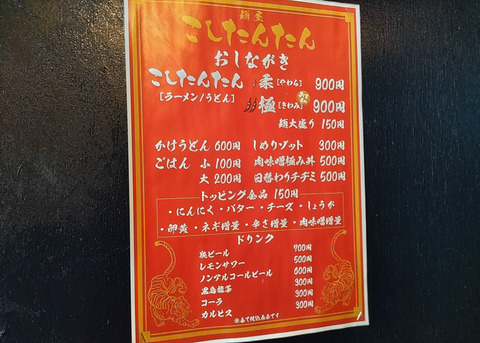 麺屋
こしたんたん
おしながき
こしたんたん 柔[やわら] 900円
[ラーメン/うどん] 極[きわみ] 900円
麺大盛り 150円
かけうどん 600円 しめリゾット 300円
ごはん 小 100円 肉味噌極み丼 500円
大 200円 日替わりチヂミ 500円
トッピング全品 150円
・にんにく・バター・チーズ・しょうが
・卵黄・ネギ増量・辛さ増量・肉味噌増量
ドリンク
瓶ビール 700円
レモンサワー 500円
ノンアルコールビール 600円
黒烏龍茶 300円
コーラ 300円
カルピス 300円